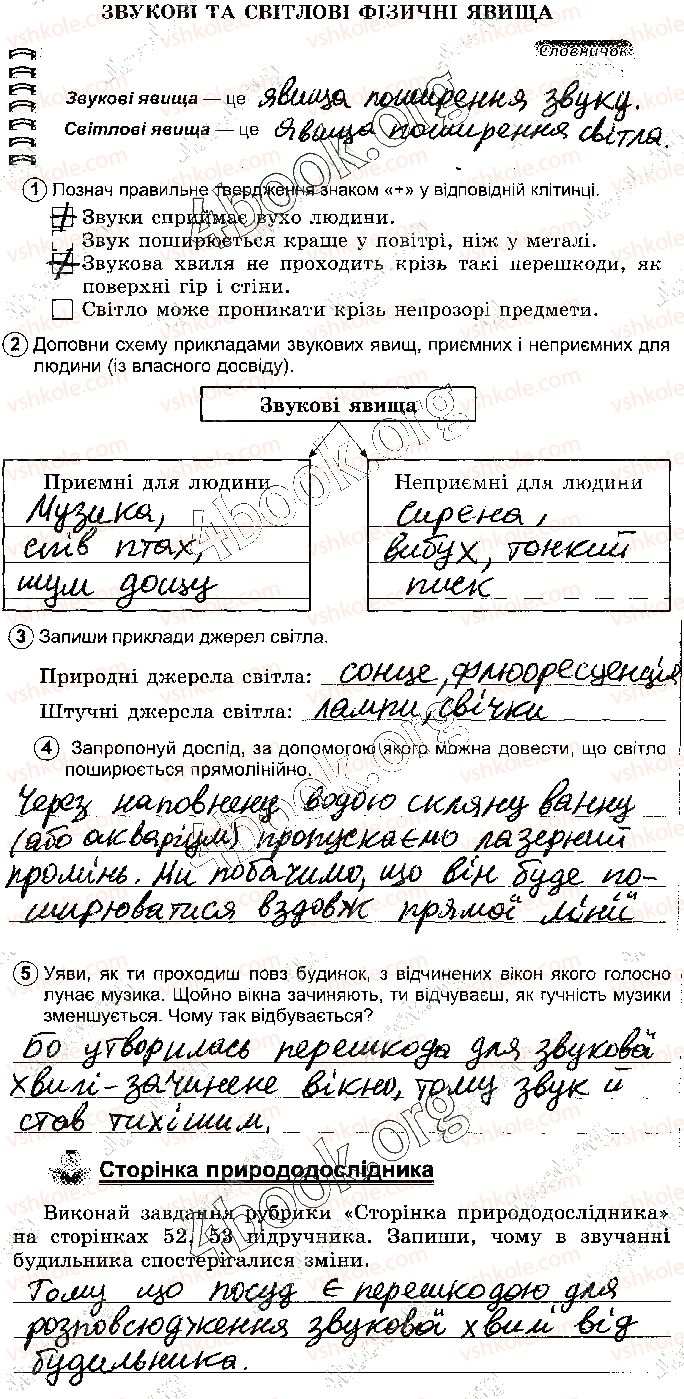 ЗВУКОВІ ТА СВІТЛОВІ ФІЗИЧНІ ЯВИЩА
Словничок
Звукові явища — це явища поширення звуку.
Світлові явища — це явища поширення світла.
1 Познач правильне твердження знаком «+» у відповідній клітинці.
Звуки сприймає вухо людини.
Звук поширюється краще у повітрі, ніж у металі.
Звукова хвиля не проходить крізь такі перешкоди, як
поверхні гір і стіни.
Світло може проникати крізь непрозорі предмети.
2 Доповни схему прикладами звукових явищ, приємних і неприємних для
людини (із власного досвіду).
Звукові явища
Приємні для людини
Музика,
спів птах,
шум дощу
Неприємні для людини
Сирена,
вибух, тонкий
писк
3 Запиши приклади джерел світла.
Природні джерела світла: сонце, флюоресценція
Штучні джерела світла: лампи, свічки
4 Запропонуй дослід, за допомогою якого можна довести, що світло
поширюється прямолінійно.
Через наповнену водою скляну ванну
(або акваріум) пропускаємо лазерний
промінь. Ми побачимо, що він буде по-
ширюватися вздовж прямої лінії
5 Уяви, як ти проходиш повз будинок, з відчинених вікон якого голосно
лунає музика. Щойно вікна зачиняють, ти відчуваєш, як гучність музики
зменшується. Чому так відбувається?
Бо утворилась перешкода для звукової
хвилі - зачинене вікно, тому звук й
став тихішим.
Сторінка природодослідника
Виконай завдання рубрики «Сторінка природодослідника»
на сторінках 52, 53 підручника. Запиши, чому в звучанні
будильника спостерігалися зміни.
Тому що посуд є перешкодою для
розповсюдження звукової хвилі від
будильника.
4book.org
vshkole.com